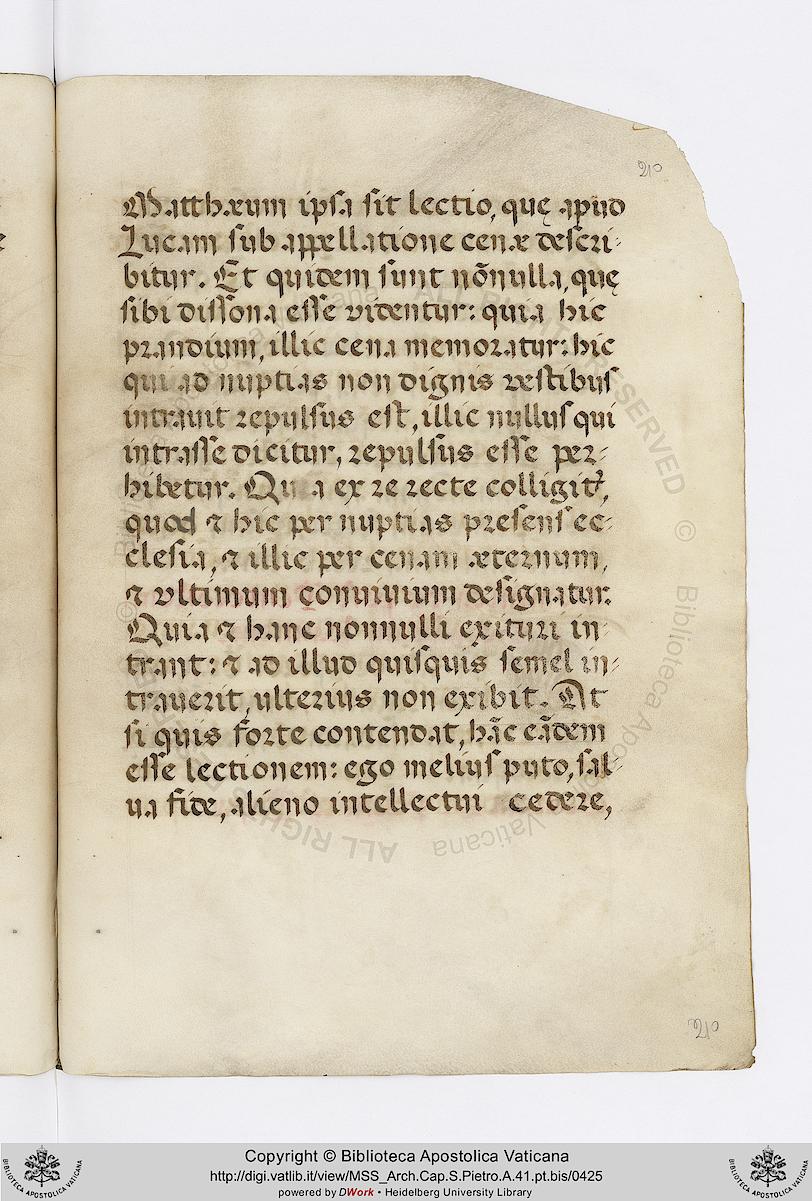 210
Matthæum ipsa sit lectio, quę apud
Lucam sub appellatione cenæ descri-
bitur. Et quidem sunt nõnulla, quę
sibi dissona esse videntur: quia hic
prandium, illic cena memoratur: hic
qui ad nuptias non dignis vestibus
intrauit repulsus est, illic nullus qui
intrasse dicitur, repulsus esse per-
hibetur. Qua ex re recte colligit᷑,
quod ⁊ hic per nuptias presens ec-
clesia, ⁊ illic per cenam æternum,
⁊ vltimum conuiuium designatur.
Quia ⁊ hanc nonnulli exituri in-
trant: ⁊ ad illud quisquis semel in-
trauerit, ulterius non exibit. At
si quis forte contendat, hãc eãdem
esse lectionem: ego melius puto, sal-
ua fide, alieno intellectui cedere,
210
Copyright © Biblioteca Apostolica Vaticana
http://digi.vatlib.it/view/MSS_Arch.Cap.S.Pietro.A.41.pt.bis/0425
powered by DWork • Heidelberg University Library